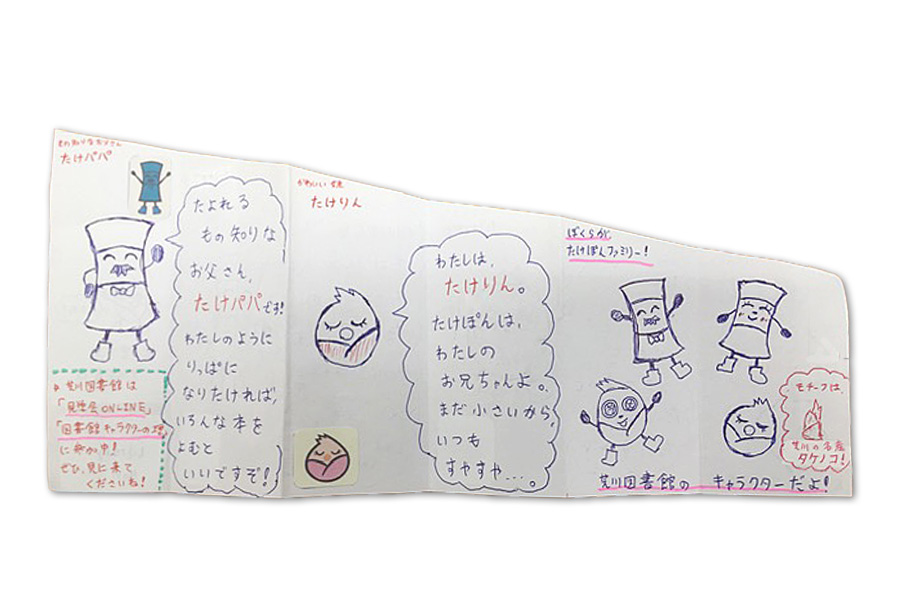 もの知りなお父さん
たけパパ
たよれる
もの知りな
お父さん、
たけパパです!
わたしのように
りっぱに
なりたければ、
いろんな本を
よむと
いいですぞ!
荒川図書館は
「見学会ONLINE」
「図書館キャラクターの
に参加中!
ぜひ、見に来て
くださいね!
かわいい妹
たけりん
わたしは、
たけりん。
たけぽんは、
わたしの
お兄ちゃんよ。
まだ小さいから、
いつも
すやすや…。
ぼくらが
たけぽんファミリー!
モチーフは、
荒川の名産
タケノコ!
荒川図書館の キャラクターだよ!